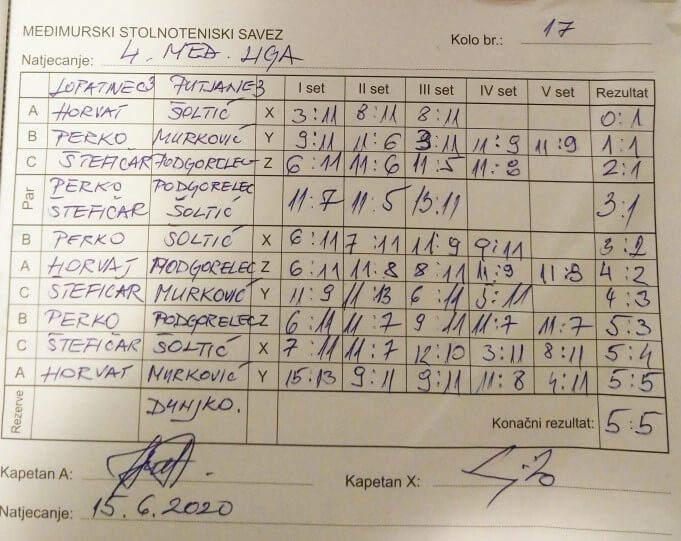 MEĐIMURSKI STOLNOTENISKI SAVEZ
Kolo br.: 17
Natjecanje: 4. MEĐ. LIGA
LOPATINEC 3 PUTJANE 3 I set II set III set IV set V set Rezultat
A HORVAT ŠOLTIĆ X 3:11 8:11 8:11 0:1
B PERKO MURKOVIĆ Y 9:11 11:6 3:11 11:9 11:9 1:1
C ŠTEFIČAR PODGORELEC Z 6:11 11:6 11:5 11:8 2:1
Par PERKO PODGORELEC
ŠTEFIČAR ŠOLTIĆ 11:7 11:5 13:11 3:1
B PERKO ŠOLTIĆ X 6:11 7:11 11:9 9:11 3:2
A HORVAT PODGORELEC Z 6:11 11:8 8:11 11:9 11:8 4:2
C ŠTEFIČAR MURKOVIĆ Y 11:9 11:13 6:11 5:11 4:3
B PERKO PODGORELEC Z 6:11 11:7 9:11 11:7 11:7 5:3
C ŠTEFIČAR ŠOLTIĆ X 7:11 11:7 12:10 3:11 8:11 5:4
A HORVAT MURKOVIĆ Y 15:13 9:11 9:11 11:8 4:11 5:5
Rezerve
Konačni rezultat: 5:5
Kapetan A:
Kapetan X:
Natjecanje: 15.6.2020